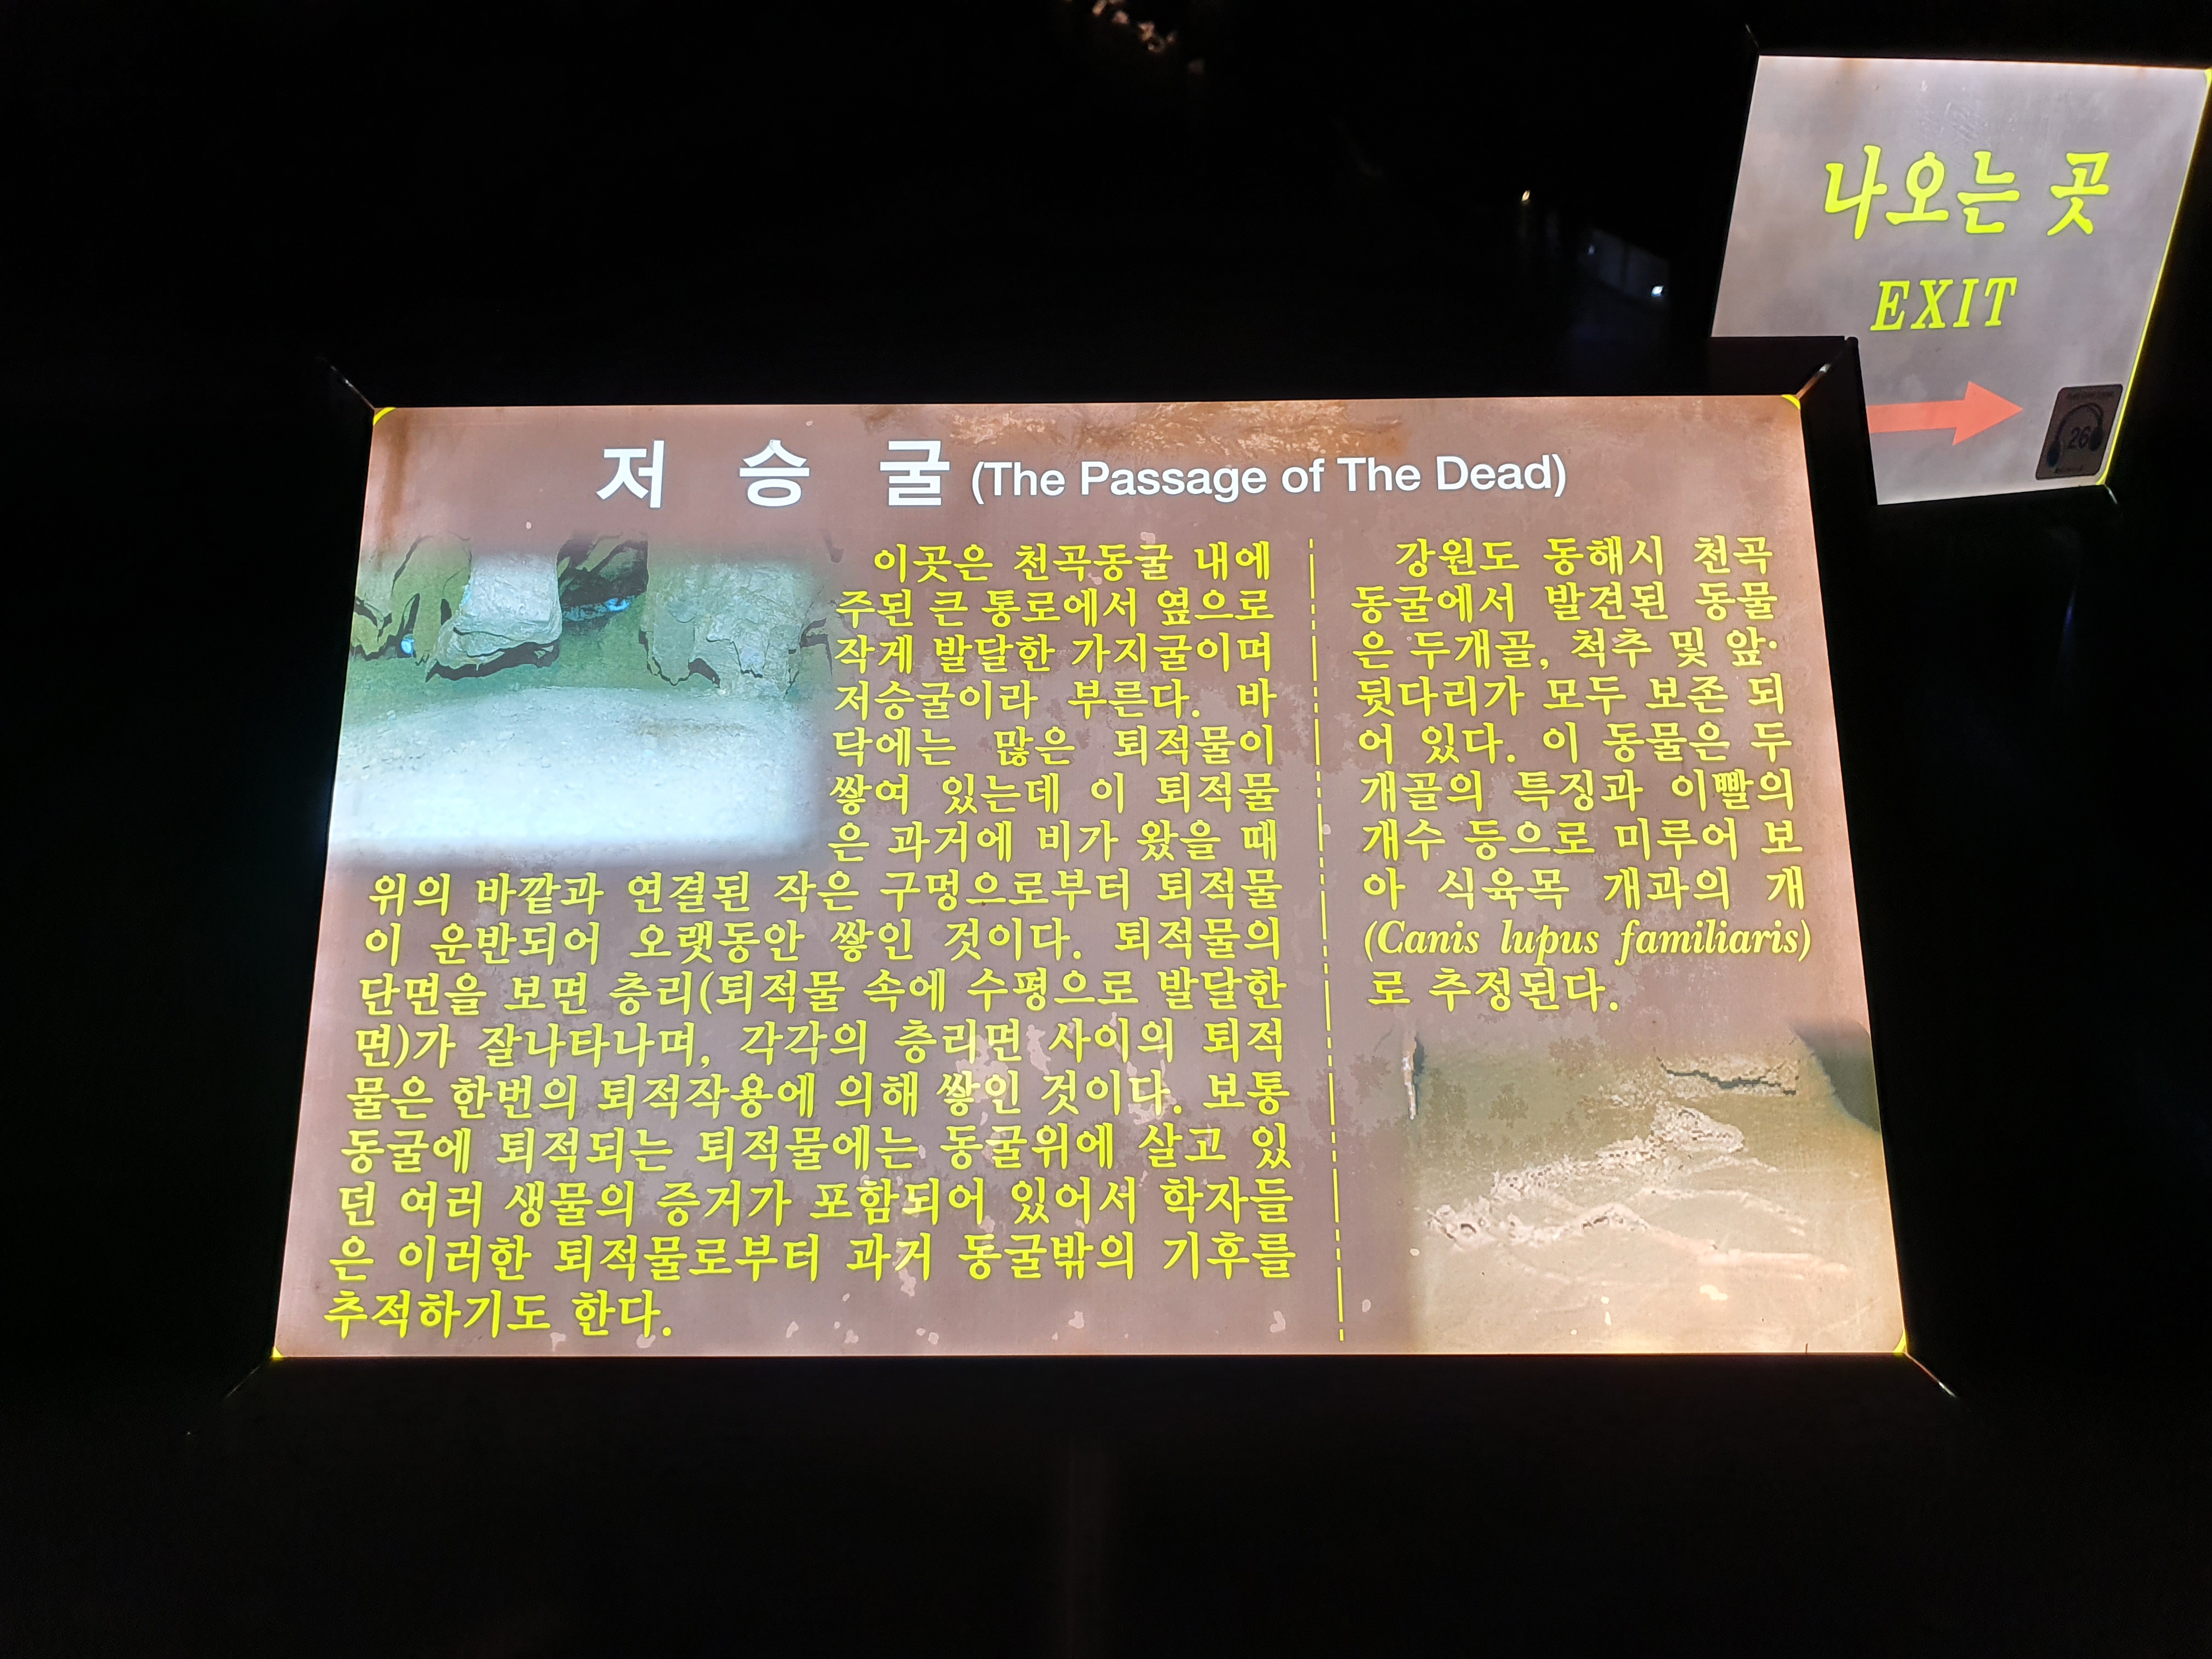 나오는 곳
EXIT
26
저 승 굴 (The Passage of The Dead)
이곳은 천곡동굴 내에
주된 큰 통로에서 옆으로
작게 발달한 가지굴이며
저승굴이라 부른다. 바
닥에는 많은 퇴적물이
쌓여 있는데 이 퇴적물
은 과거에 비가 왔을 때
위의 바깥과 연결된 작은 구멍으로부터 퇴적물
이 운반되어 오랫동안 쌓인 것이다. 퇴적물의
단면을 보면 층리(퇴적물 속에 수평으로 발달한
면)가 잘나타나며, 각각의 층리면 사이의 퇴적
물은 한번의 퇴적작용에 의해 쌓인 것이다. 보통
동굴에 퇴적되는 퇴적물에는 동굴위에 살고 있
던 여러 생물의 증거가 포함되어 있어서 학자들
은 이러한 퇴적물로부터 과거 동굴밖의 기후를
추적하기도 한다.
강원도 동해시 천곡
동굴에서 발견된 동물
은 두개골, 척추 및 앞·
뒷다리가 모두 보존 되
어 있다. 이 동물은 두
개골의 특징과 이빨의
개수 등으로 미루어 보
아 식육목 개과의 개
(Canis lupus familiaris)
로 추정된다.